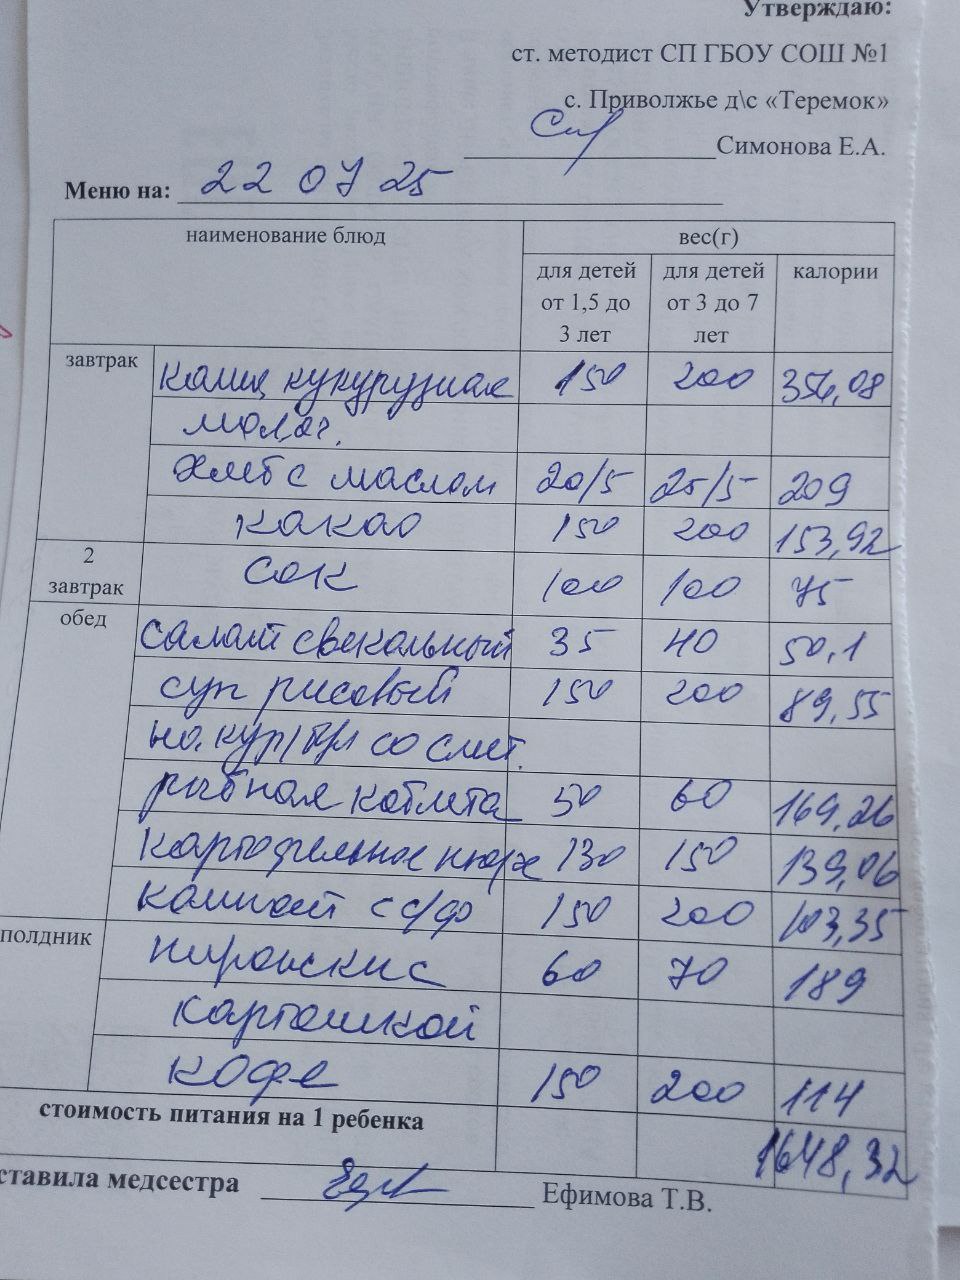 Утверждаю:
ст. методист СП ГБОУ СОШ №1
с. Приволжье д\с «Теремок»
Симонова Е.А.
Меню на: 22 07 25
наименование блюд вес(г)
для детей от 1,5 до 3 лет для детей от 3 до 7 лет калории
завтрак каша кукурузная 150 200 356,08
молоч.
хлеб с маслом 20/5 25/5 209
какао 150 200 153,92
2 завтрак сок 100 100 75
обед салат свекольный 35 40 50,1
суп рисовый 150 200 89,55
на кур/бул со смет.
рыбная котлета 50 60 169,26
картофельное пюре 130 150 139,06
компот с с/ф 150 200 103,35
полдник пирожки с 60 70 189
картошкой
кофе 150 200 114
стоимость питания на 1 ребенка 1648,32
ставила медсестра Ефимова Т.В.